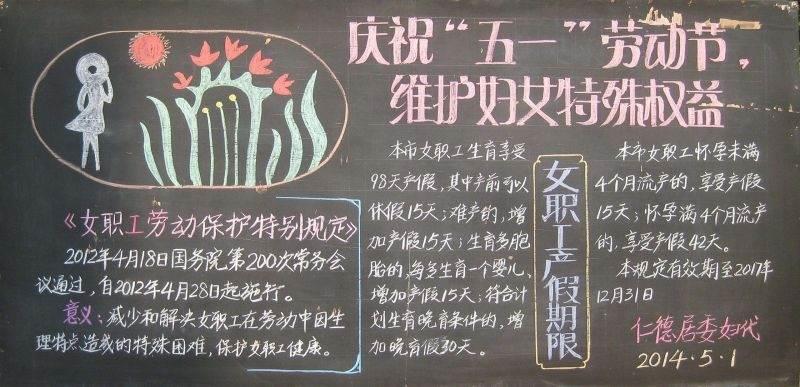 庆祝“五一”劳动节，
维护妇女特殊权益
《女职工劳动保护特别规定》
2012年4月18日国务院第200次常务会
议通过，自2012年4月28日起施行。
意义：减少和解决女职工在劳动中因生
理特点造成的特殊困难，保护女职工健康。
本市女职工生育享受
98天产假，其中产前可以
休假15天；难产的，增
加产假15天；生育多胞
胎的，每多生育一个婴儿，
增加产假15天；符合计
划生育晚育条件的，增
加晚育假30天。
女职工产假期限
本市女职工怀孕未满
4个月流产的，享受产假
15天；怀孕满4个月流产
的，享受产假42天。
本规定有效期至2017年
12月31日
仁德居委妇代
2014·5·1